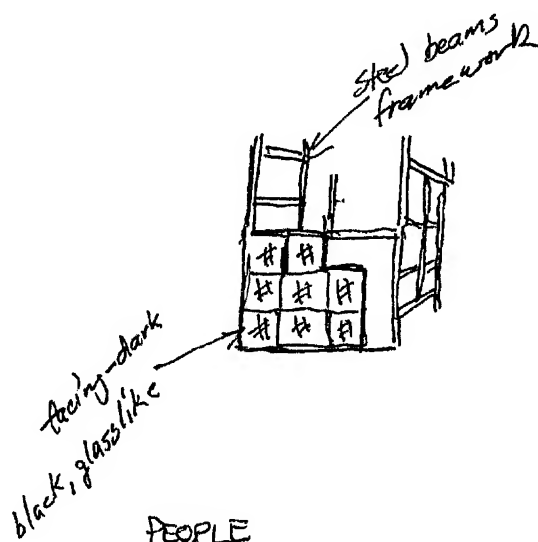 steel beams
framework
# #
# # #
# # #
facing-dark
black, glasslike
PEOPLE